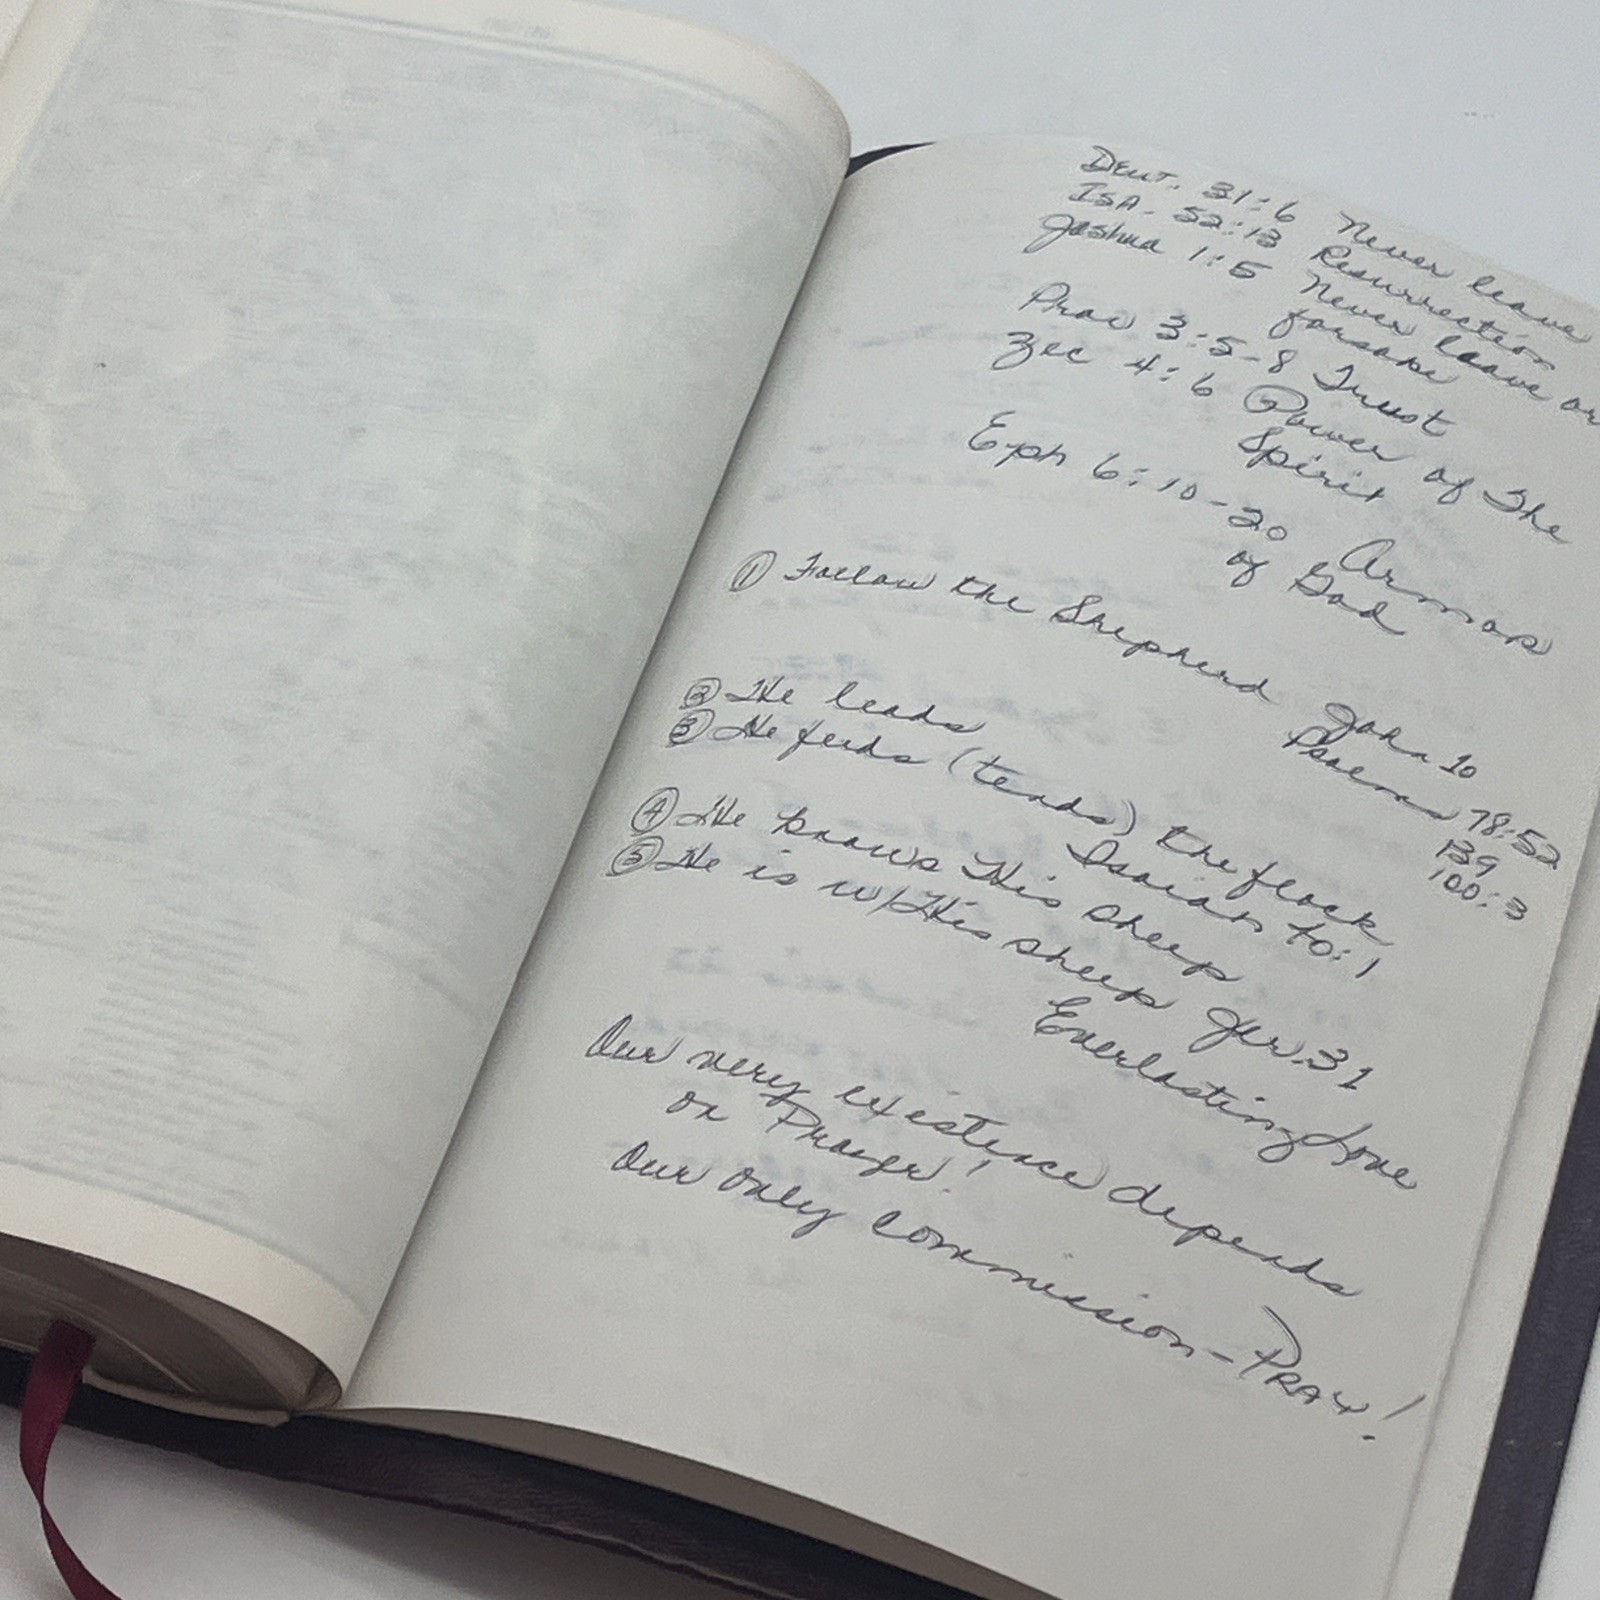 DEUT. 31:6 Never leave
ISA. 52:13 Resurrection
Joshua 1:5 Never leave or
forsake
Prov 3:5-8 Trust
Zec 4:6 Power of The
Spirit
Eph 6:10-20 Armor
of God
① Follow the Shepherd John 10
Psalm 78:52
139
100:3
② He leads
③ He feeds (tends) the flock
Isaiah 40:1
④ He knows His sheep
⑤ He is w/His sheep Jer. 31
Everlasting Love
Our very existence depends
on Prayer!
Our only commission - PRAY!